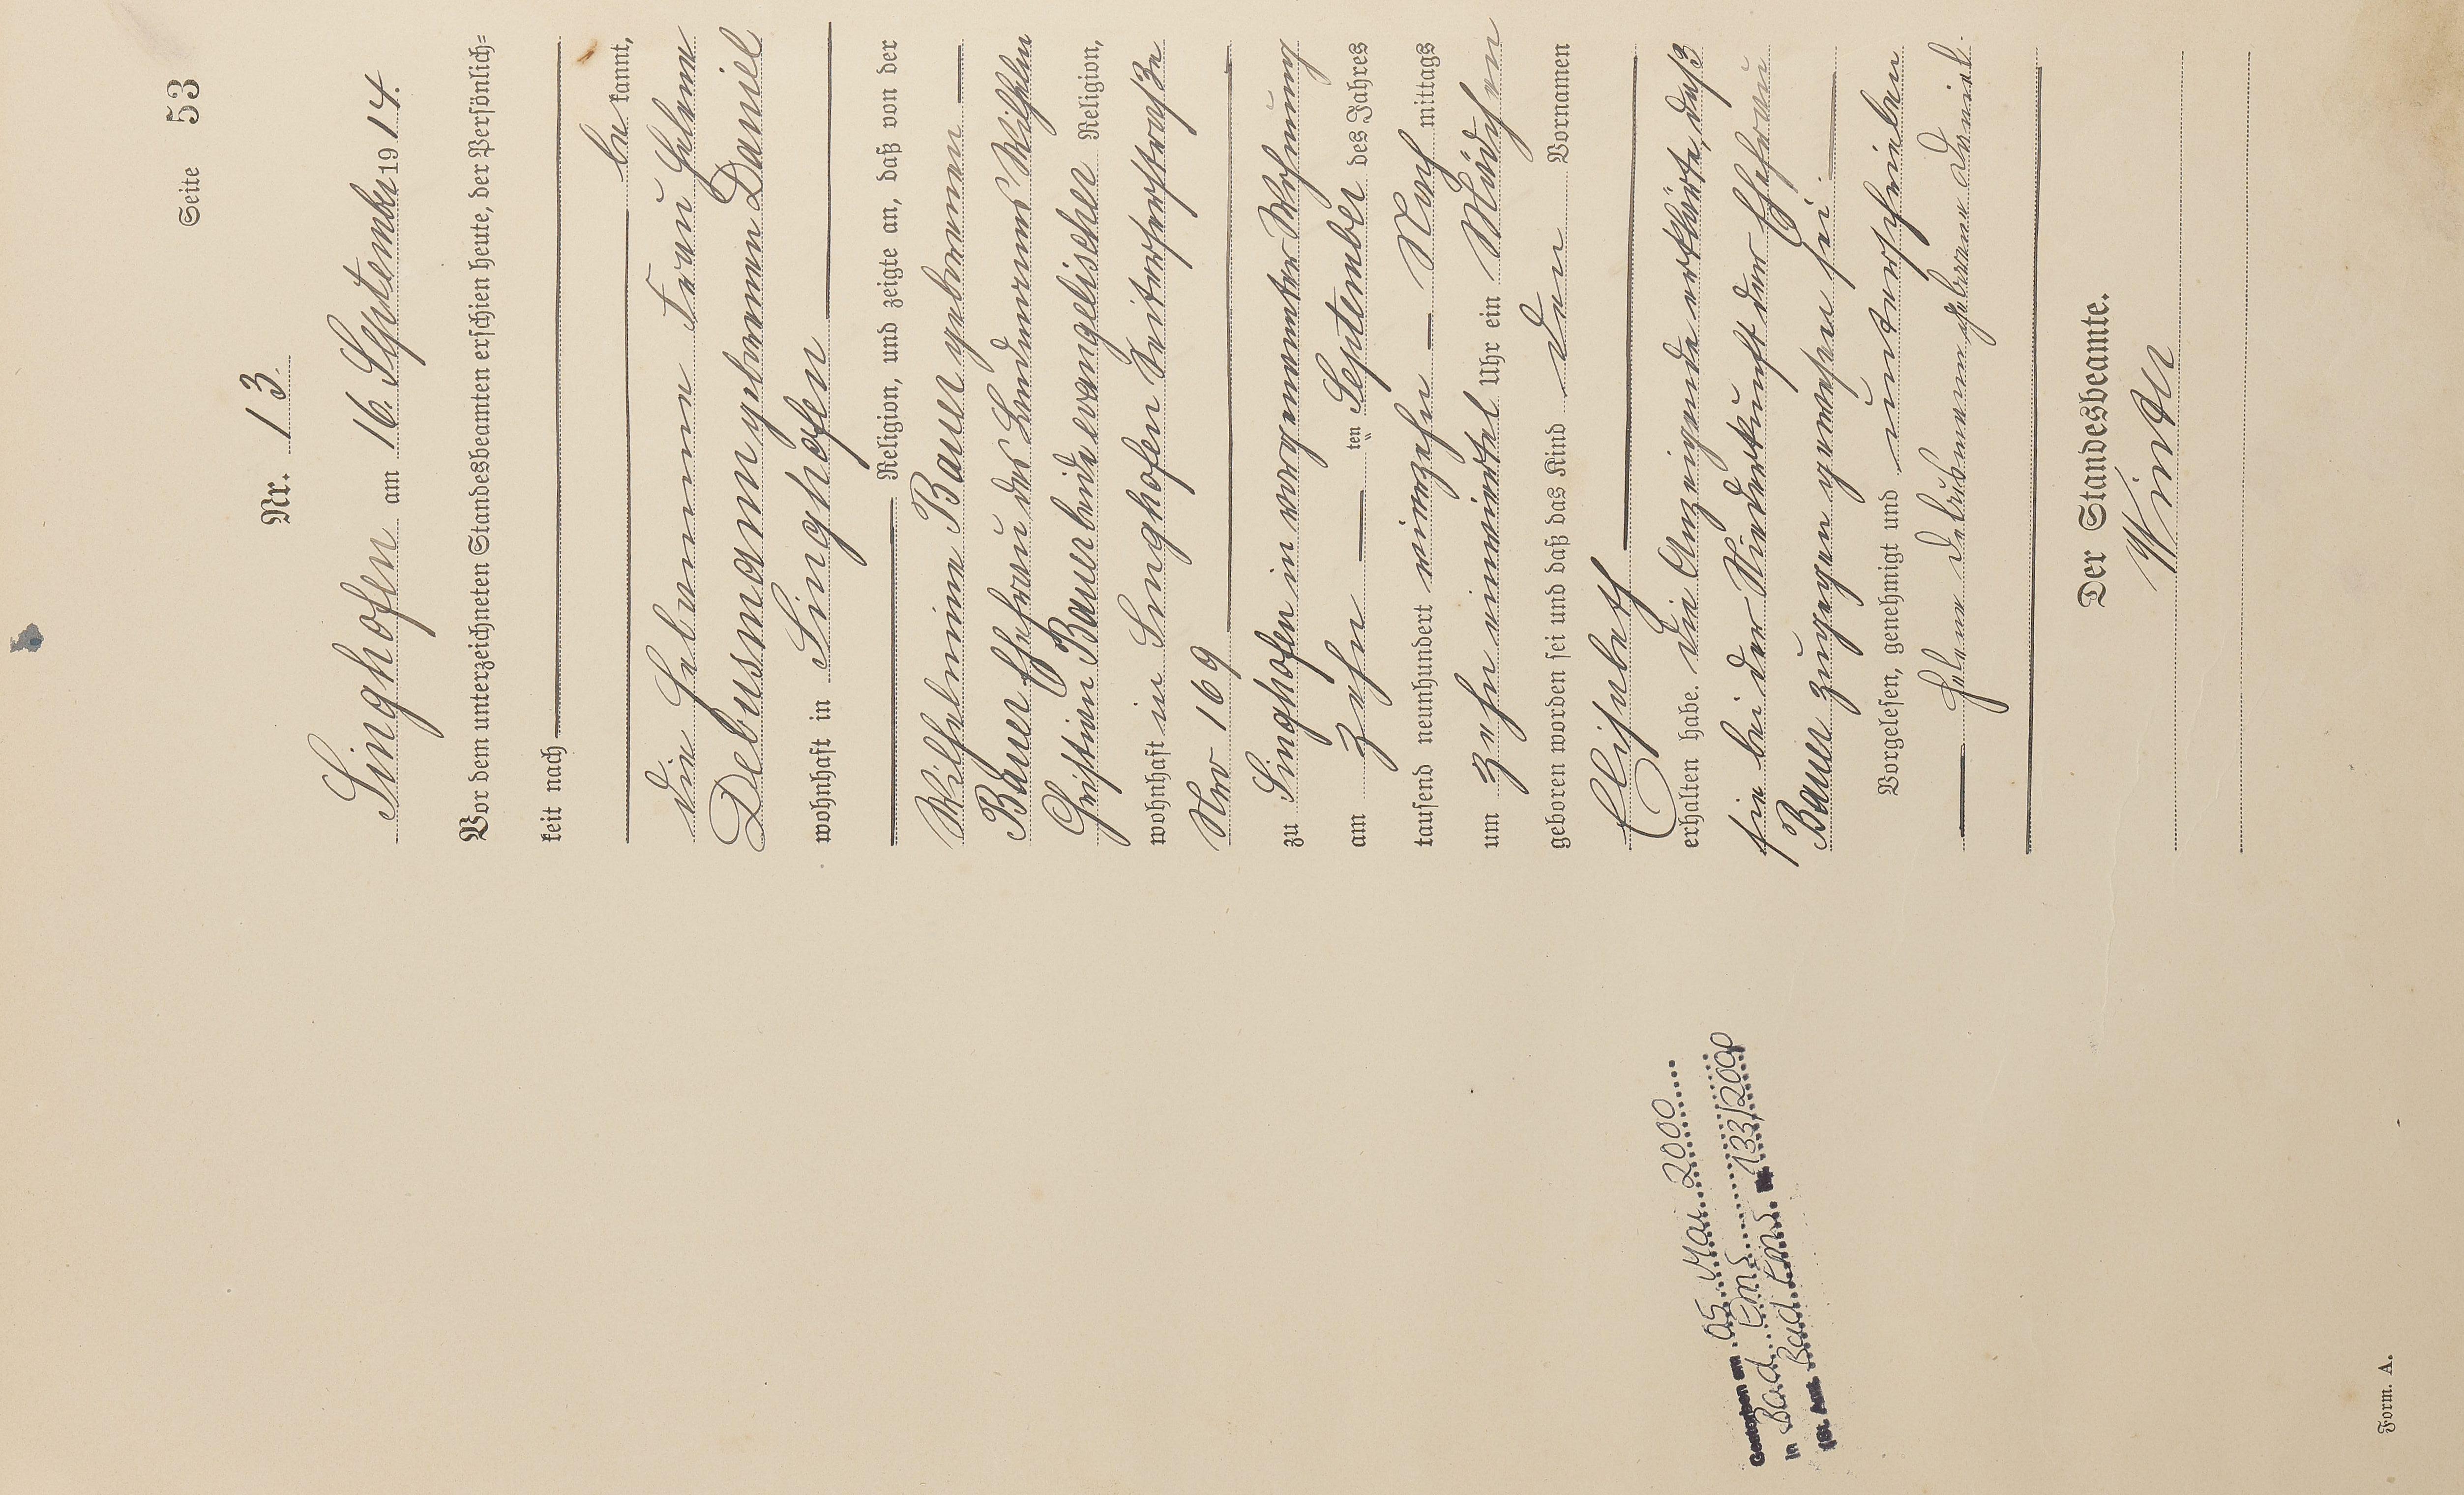 Seite 53
Nr. 13.
Singhofen am 16. September 1914.
Vor dem unterzeichneten Standesbeamten erschien heute, der Persönlich=
keit nach
bekannt,
die Hebamme Frau Helene
Debusmann geborenen Daniel
wohnhaft in Singhofen
Religion, und zeigte an, daß von der
Wilhelmine Bauer geborenen
Bauer Ehefrau des Landmanns Wilhelm
Christian Bauer beide evangelischer Religion,
wohnhaft in Singhofen
Nro 169
zu Singhofen in vorgenannter Wohnung
am zehn ten September des Jahres
tausend neunhundert vierzehn Nach mittags
um zehn einviertel Uhr ein Mädchen
geboren worden sei und daß das Kind den Vornamen
Elisabeth
erhalten habe. Die Anzeigende erklärte, daß
sie bei der Niederkunft der Ehefrau
Bauer zugegen gewesen sei.
Vorgelesen, genehmigt und unterschrieben
Helene Debusmann geborene Daniel.
Der Standesbeamte.
Winter
Gestorben am 05. Mai 2000
in Bad Ems
(St. Amt Bad Ems Nr. 133/2000
Form. A.